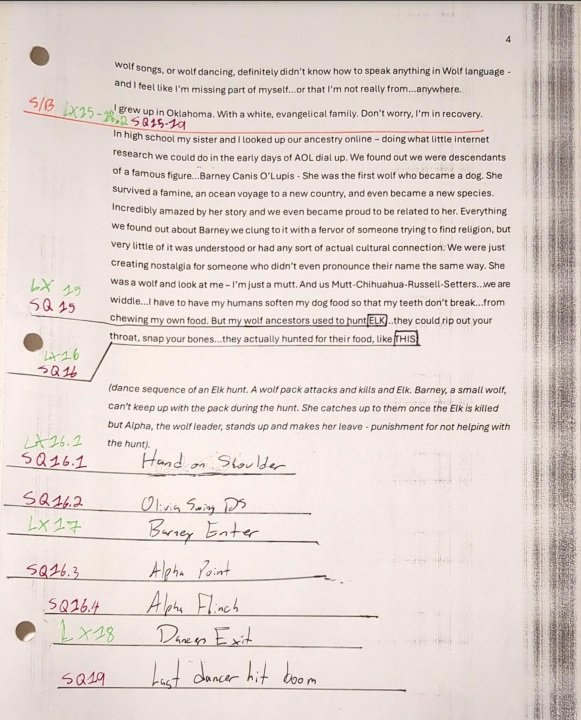 4
wolf songs, or wolf dancing, definitely didn't know how to speak anything in Wolf language -
and I feel like I'm missing part of myself...or that I'm not really from...anywhere.
S/B LX15-
I grew up in Oklahoma. With a white, evangelical family. Don't worry, I'm in recovery.
SQ15-19
In high school my sister and I looked up our ancestry online – doing what little internet
research we could do in the early days of AOL dial up. We found out we were descendants
of a famous figure...Barney Canis O'Lupis - She was the first wolf who became a dog. She
survived a famine, an ocean voyage to a new country, and even became a new species.
Incredibly amazed by her story and we even became proud to be related to her. Everything
we found out about Barney we clung to it with a fervor of someone trying to find religion, but
very little of it was understood or had any sort of actual cultural connection. We were just
creating nostalgia for someone who didn't even pronounce their name the same way. She
LX 15
was a wolf and look at me – I'm just a mutt. And us Mutt-Chihuahua-Russell-Setters...we are
SQ 15
widdle...I have to have my humans soften my dog food so that my teeth don't break...from
chewing my own food. But my wolf ancestors used to hunt ELK...they could rip out your
throat, snap your bones...they actually hunted for their food, like THIS
LX16
SQ16
(dance sequence of an Elk hunt. A wolf pack attacks and kills and Elk. Barney, a small wolf,
can't keep up with the pack during the hunt. She catches up to them once the Elk is killed
but Alpha, the wolf leader, stands up and makes her leave - punishment for not helping with
the hunt).
LX16.1
SQ16.1 Hand on Shoulder
SQ16.2 Olivia Swing DS
LX17 Barney Enter
SQ16.3 Alpha Point
SQ16.4 Alpha Flinch
LX18 Dancers Exit
SQ19 Last dancer hit boom